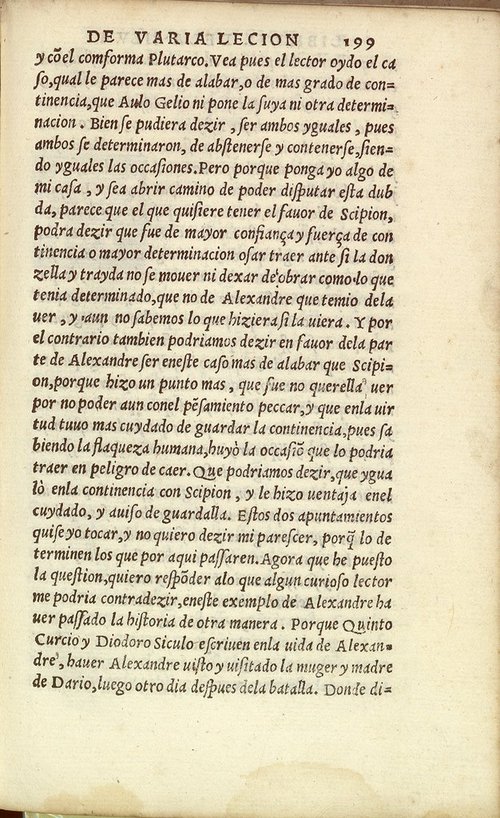 DE VARIA LECION 199
y cõel comforma Plutarco. Vea pues el lector oydo el ca
so, qual le parece mas de alabar, o de mas grado de con=
tinencia, que Aulo Gelio ni pone la suya ni otra determi=
nacion. Bien se pudiera dezir, ser ambos yguales, pues
ambos se determinaron, de abstenerse y contenerse, sien=
do yguales las occasiones. Pero porque ponga yo algo de
mi casa, y sea abrir camino de poder disputar esta dub
da, parece que el que quisiere tener el fauor de Scipion,
podra dezir que fue de mayor confiança y fuerça de con
tinencia o mayor determinacion osar traer ante si la don
zella y trayda no se mouer ni dexar de obrar como lo que
tenia determinado, que no de Alexandre que temio dela
uer, y aun no sabemos lo que hiziera si la uiera. Y por
el contrario tambien podriamos dezir en fauor dela par
te de Alexandre ser eneste caso mas de alabar que Scipi=
on, porque hizo un punto mas, que fue no querella uer
por no poder aun conel pẽsamiento peccar, y que enla uir
tud tuuo mas cuydado de guardar la continencia, pues sa
biendo la flaqueza humana, huyò la occasiõ que lo podria
traer en peligro de caer. Que podriamos dezir, que ygua
lò enla continencia con Scipion, y le hizo uentaja enel
cuydado, y auiso de guardalla. Estos dos apuntamientos
quise yo tocar, y no quiero dezir mi parescer, porq̃ lo de
terminen los que por aqui passaren. Agora que he puesto
la question, quiero respõder alo que algun curioso lector
me podria contradezir, eneste exemplo de Alexandre ha
uer passado la historia de otra manera. Porque Quinto
Curcio y Diodoro Siculo escriuen enla uida de Alexan=
dre, hauer Alexandre uisto y uisitado la muger y madre
de Dario, luego otro dia despues dela batalla. Donde di=